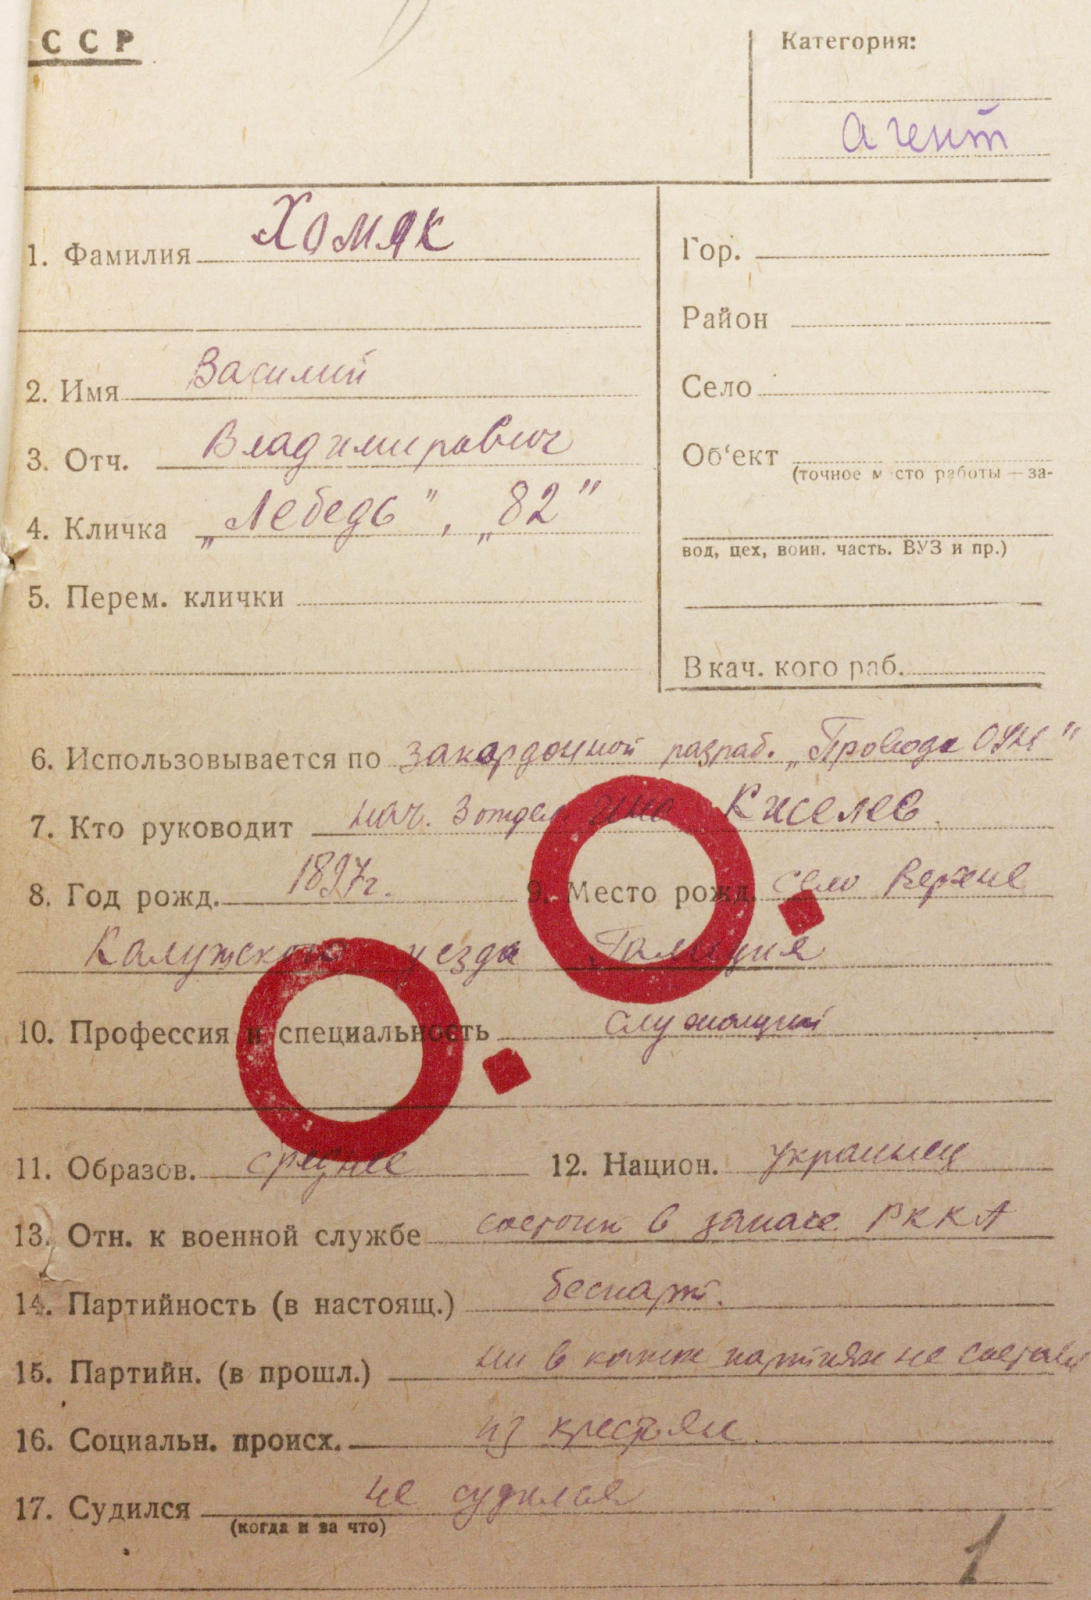 ССР
Категория:
Агент
1. Фамилия Хомяк
2. Имя Василий
3. Отч. Владимирович
4. Кличка „Лебедь", „82"
5. Перем. клички
Гор.
Район
Село
Об‘ект
(точное место работы — за-
вод, цех, воин. часть. ВУЗ и пр.)
В кач. кого раб.
6. Использовывается по закордонной разраб. „Провода ОУН"
7. Кто руководит нач. 3 отдел ИНО Киселев
8. Год рожд. 1897г. 9. Место рожд. село
Калужского уезда Галиция
10. Профессия и специальность служащий
11. Образов. среднее 12. Национ. украинец
13. Отн. к военной службе состоит в запасе РККА
14. Партийность (в настоящ.) беспарт.
15. Партийн. (в прошл.) ни в каких партиях не состоял
16. Социальн. происх. из крестьян
17. Судился не судился
(когда и за что)
1